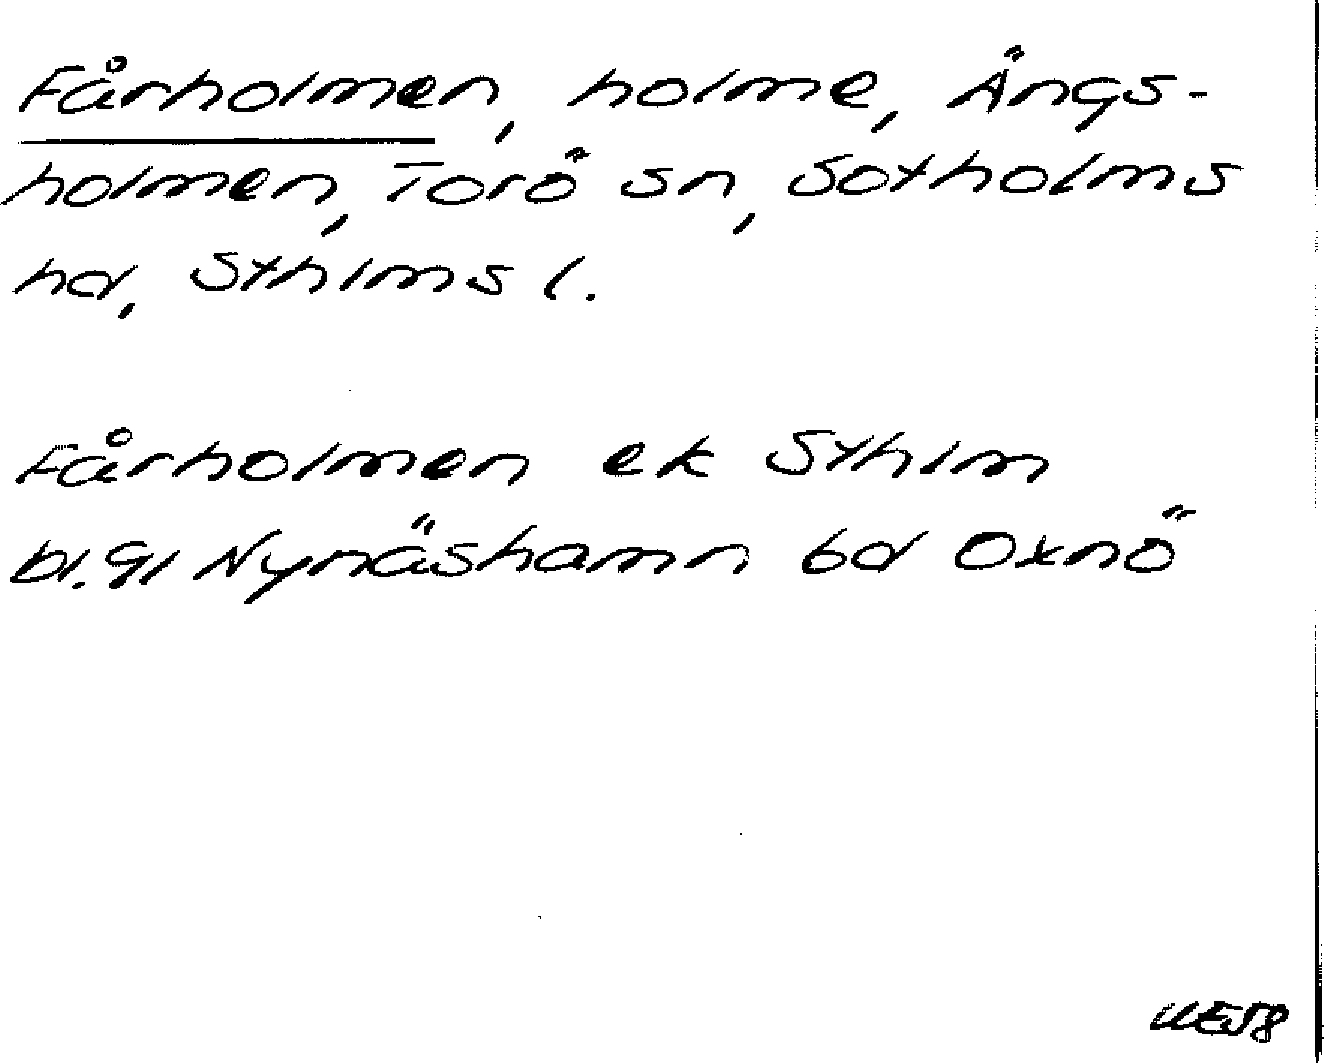 Fårholmen, holme, Ängs-
holmen, Torö sn, Sotholms
hd, Sthlms l.
Fårholmen ek Sthlm
bl. 91 Nynäshamn bd Oxnö